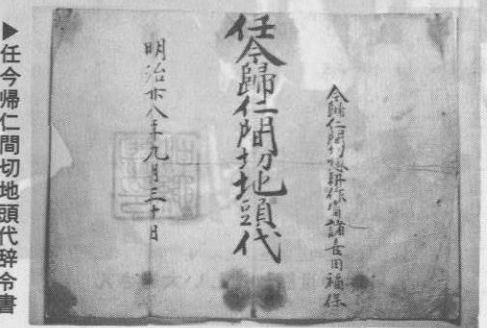 今歸仁間切惣耕作當諸喜田福保
任今歸仁間切地頭代
明治廿八年九月三十日
▶任今帰仁間切地頭代辞令書